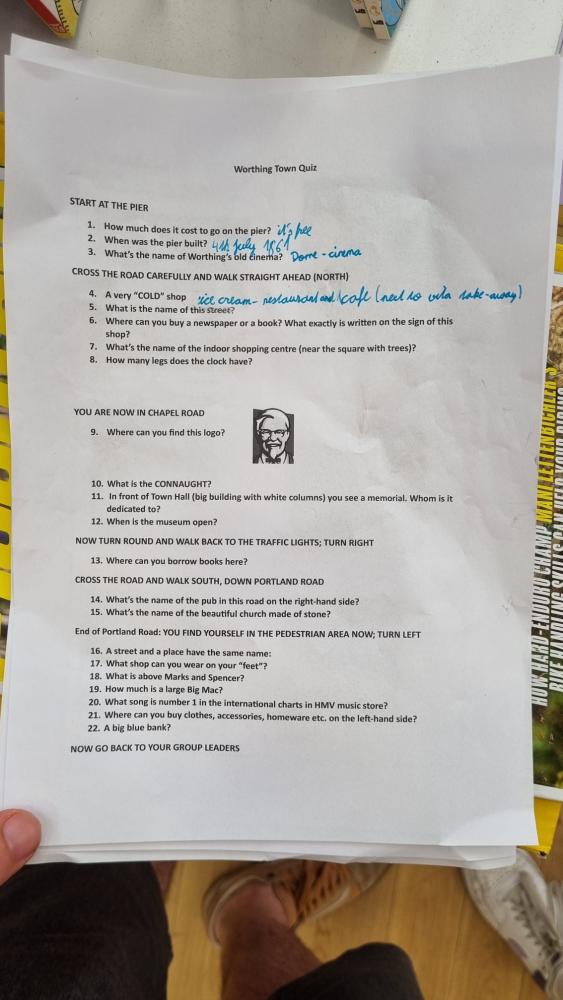 Worthing Town Quiz
START AT THE PIER
1. How much does it cost to go on the pier? it's free
2. When was the pier built? 4th July 1861
3. What's the name of Worthing's old cinema? Dome - cinema
CROSS THE ROAD CAREFULLY AND WALK STRAIGHT AHEAD (NORTH)
4. A very "COLD" shop ice cream - restaurant and café (next to vita take-away)
5. What is the name of this street?
6. Where can you buy a newspaper or a book? What exactly is written on the sign of this
shop?
7. What's the name of the indoor shopping centre (near the square with trees)?
8. How many legs does the clock have?
YOU ARE NOW IN CHAPEL ROAD
9. Where can you find this logo?
10. What is the CONNAUGHT?
11. In front of Town Hall (big building with white columns) you see a memorial. Whom is it
dedicated to?
12. When is the museum open?
NOW TURN ROUND AND WALK BACK TO THE TRAFFIC LIGHTS; TURN RIGHT
13. Where can you borrow books here?
CROSS THE ROAD AND WALK SOUTH, DOWN PORTLAND ROAD
14. What's the name of the pub in this road on the right-hand side?
15. What's the name of the beautiful church made of stone?
End of Portland Road: YOU FIND YOURSELF IN THE PEDESTRIAN AREA NOW; TURN LEFT
16. A street and a place have the same name:
17. What shop can you wear on your "feet"?
18. What is above Marks and Spencer?
19. How much is a large Big Mac?
20. What song is number 1 in the international charts in HMV music store?
21. Where can you buy clothes, accessories, homeware etc. on the left-hand side?
22. A big blue bank?
NOW GO BACK TO YOUR GROUP LEADERS
HOW HARD-ENDURO CHAMP MANI LETTENBICHLER'S